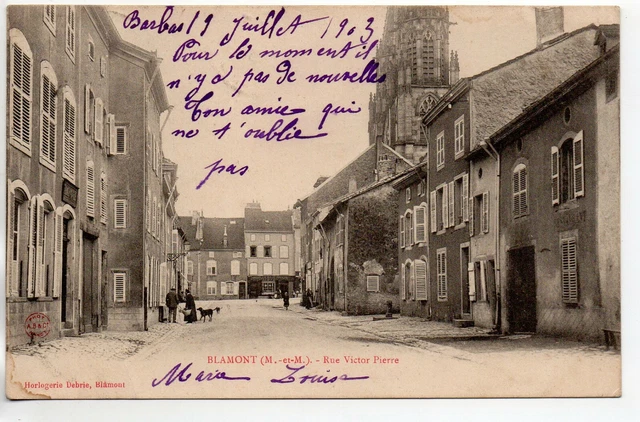 Barbas 19 Juillet 1903
Pour le moment il
n'y a pas de nouvelles
Ton amie qui
ne t'oublie
pas
BLAMONT (M.-et-M.). - Rue Victor Pierre
Marie Louise
Horlogerie Debrie, Blâmont